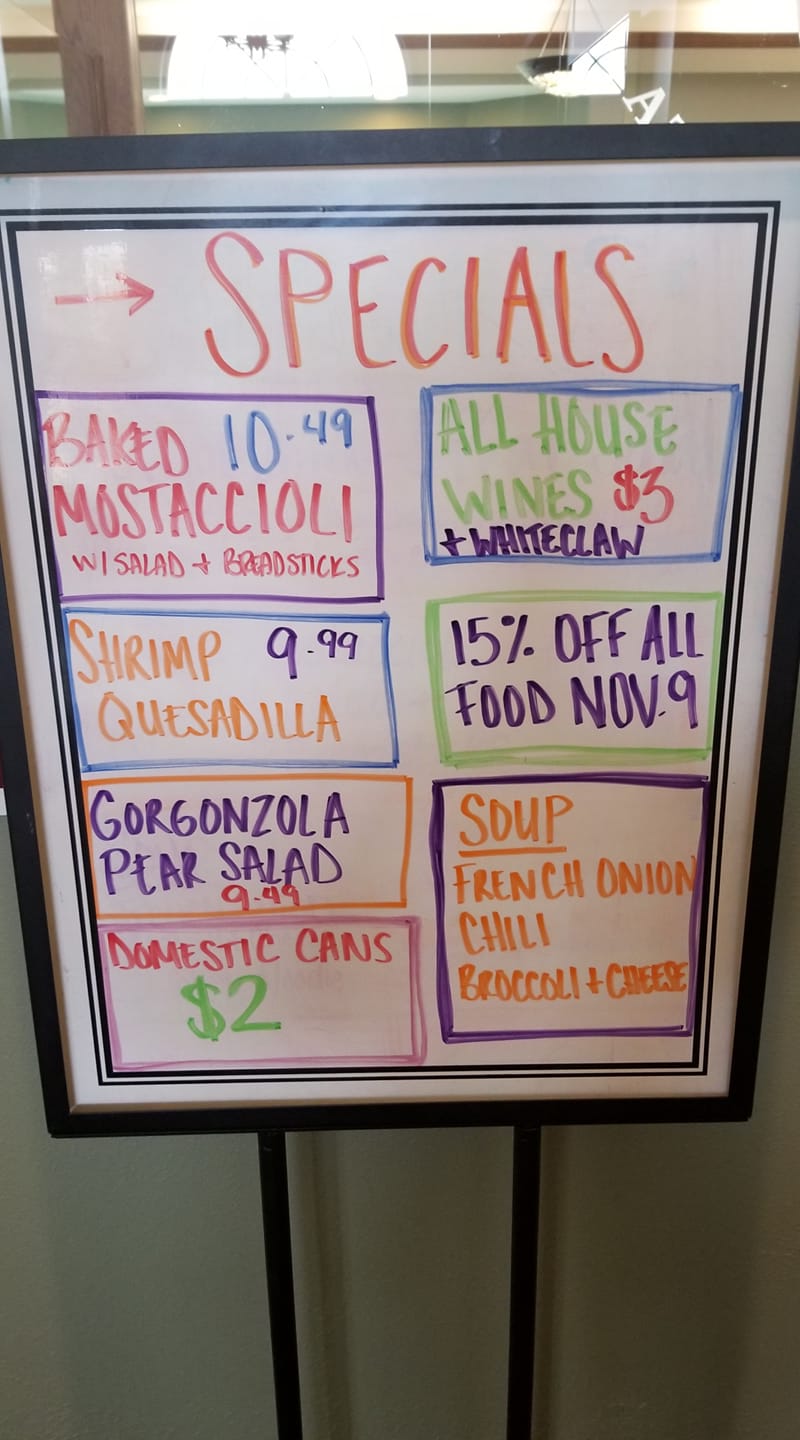 → SPECIALS
BAKED 10.49
MOSTACCIOLI
W/ SALAD + BREADSTICKS
SHRIMP 9.99
QUESADILLA
GORGONZOLA
PEAR SALAD
9.49
DOMESTIC CANS
$2
ALL HOUSE
WINES $3
+ WHITECLAW
15% OFF ALL
FOOD NOV. 9
SOUP
FRENCH ONION
CHILI
BROCCOLI + CHEESE